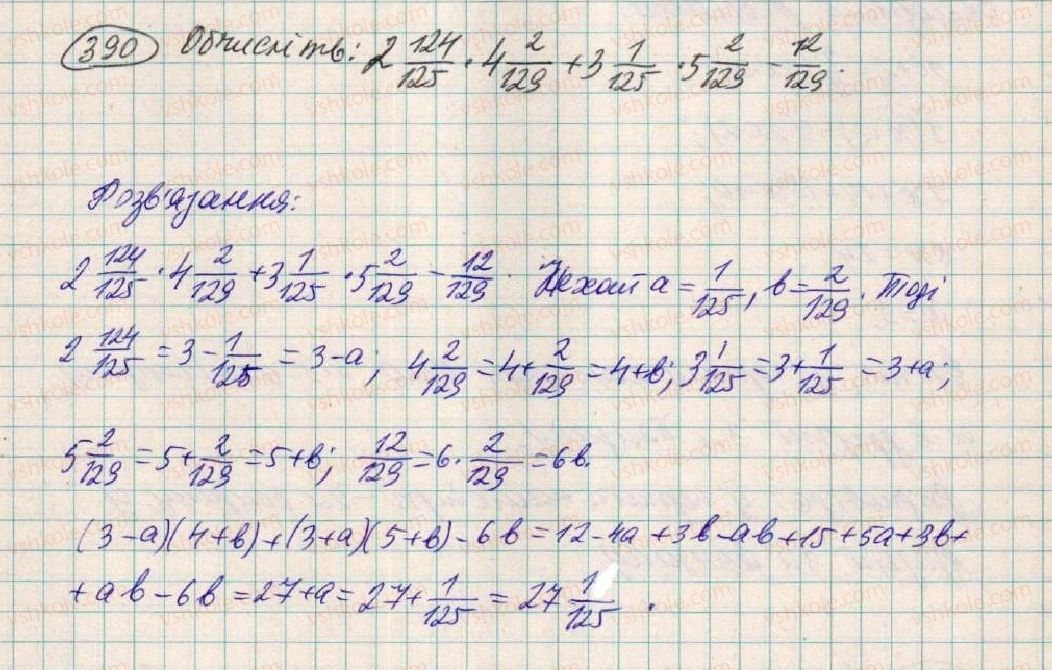 390 Обчисліть: 2 124/125 · 4 2/129 + 3 1/125 · 5 2/129 - 12/129.
Розв'язання:
2 124/125 · 4 2/129 + 3 1/125 · 5 2/129 - 12/129. Нехай a = 1/125, в = 2/129. Тоді
2 124/125 = 3 - 1/125 = 3 - a; 4 2/129 = 4 + 2/129 = 4 + в; 3 1/125 = 3 + 1/125 = 3 + a;
5 2/129 = 5 + 2/129 = 5 + в; 12/129 = 6 · 2/129 = 6в.
(3 - a)(4 + в) + (3 + a)(5 + в) - 6в = 12 - 4a + 3в - aв + 15 + 5a + 3в +
+ aв - 6в = 27 + a = 27 + 1/125 = 27 1/125.